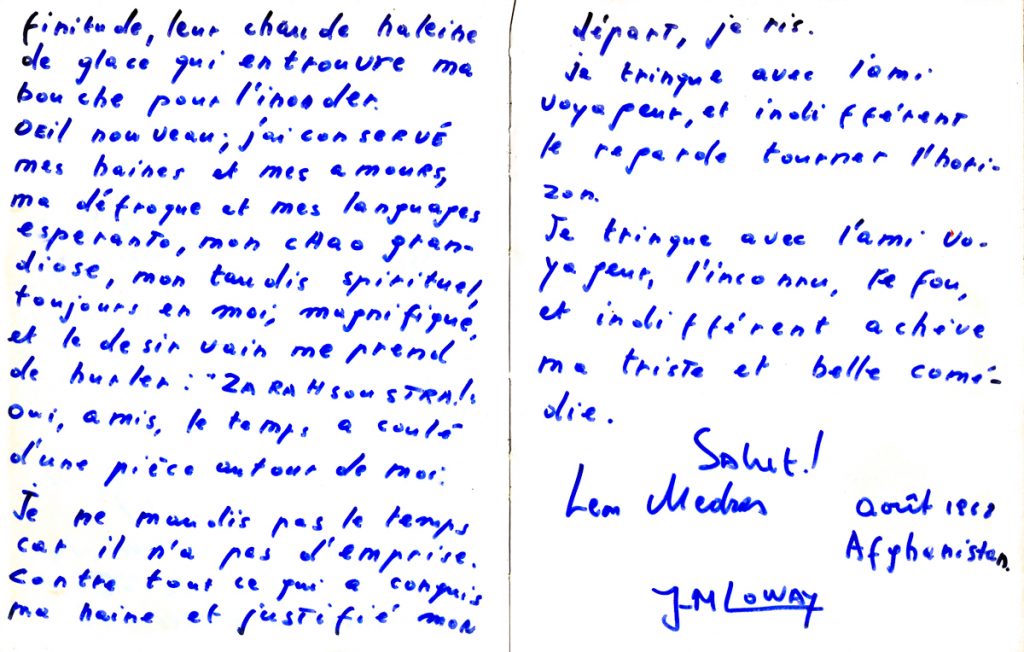 finitude, leur chaude haleine
de glace qui entrouvre ma
bouche pour l'inonder.
OEil nouveau; j'ai conservé
mes haines et mes amours,
ma défroque et mes languages
esperanto, mon chao gran-
diose, mon taudis spirituel,
toujours en moi, magnifique,
et le desir vain me prend
de hurler: "ZARAHSOUSTRA!"
Oui, amis, le temps a coulé
d'une pièce autour de moi.
Je ne maudis pas le temps
car il n'a pas d'emprise.
Contre tout ce qui a conquis
ma haine et justifié mon
départ, je ris.
je trinque avec l'ami
voyageur, et indifférent
le regarde tourner l'hori-
zon.
Je trinque avec l'ami vo-
yageur, l'inconnu, le fou,
et indifférent achève
ma triste et belle comé-
die.
Salut!
Août 1968
Afghanistan.
J-M LOWAY